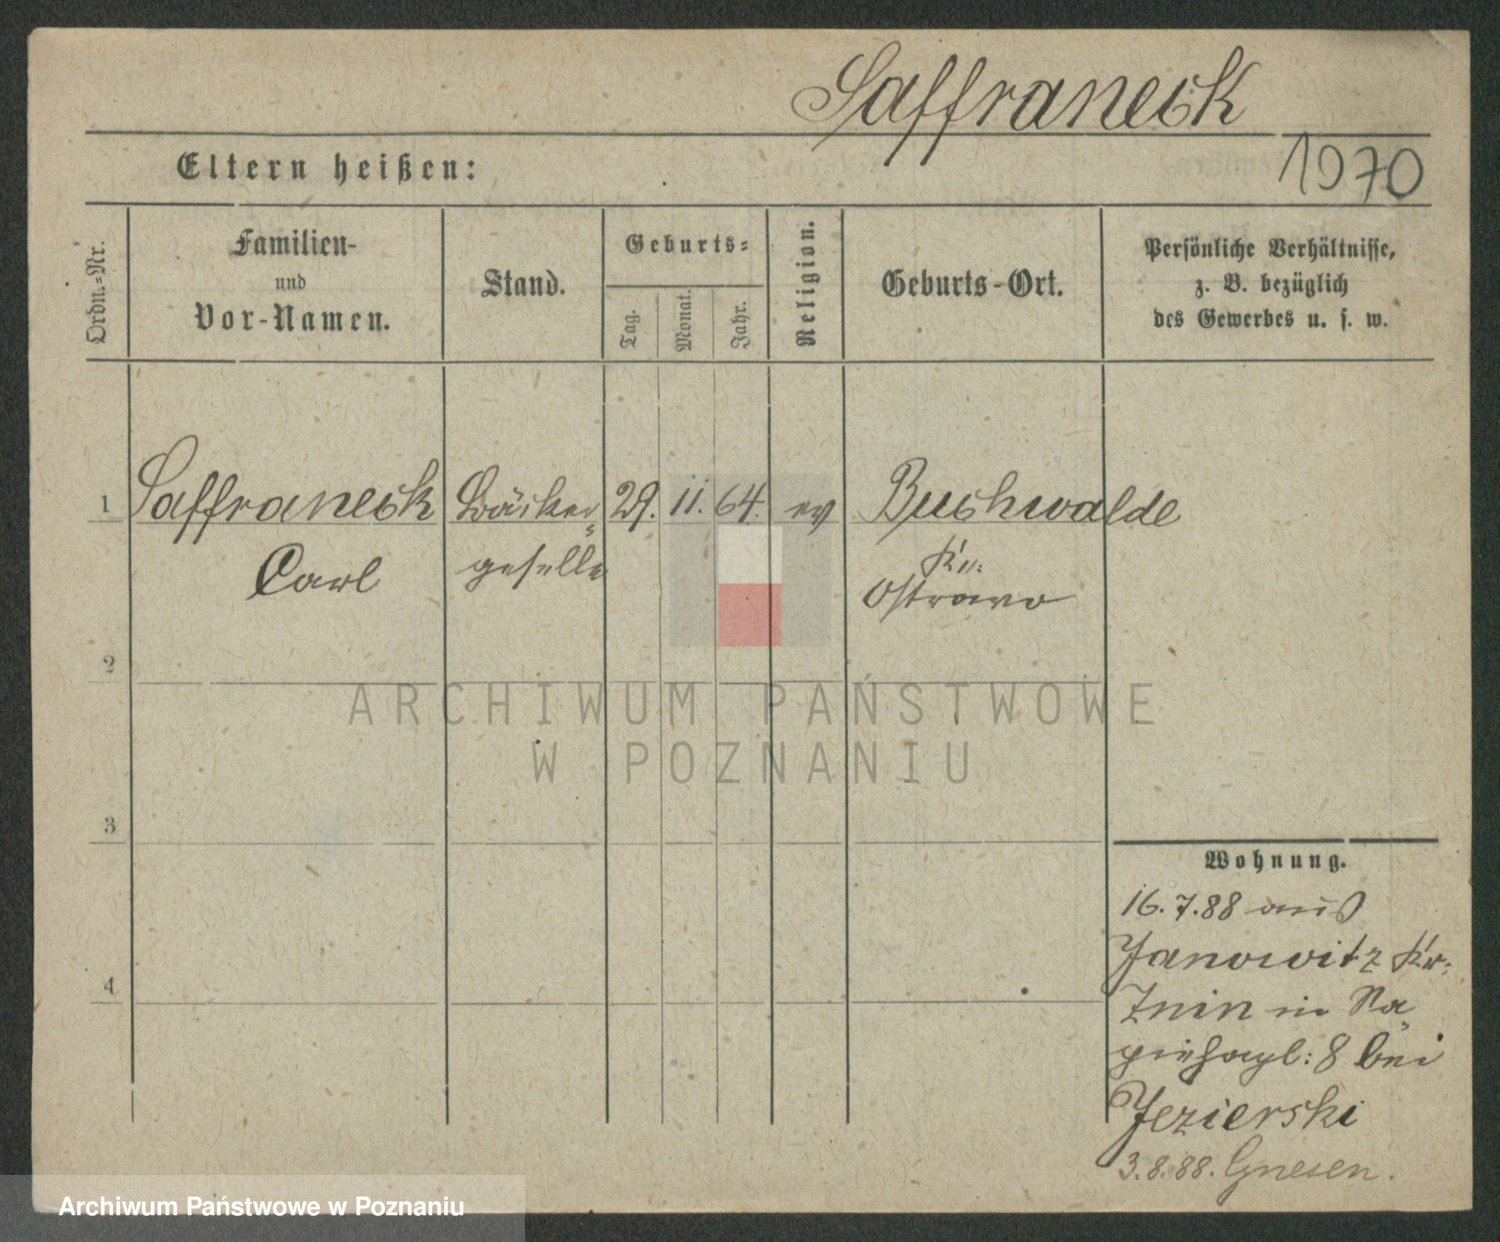 Saffraneck
Eltern heißen:
1970
Ordn.-Nr.
Familien-
und
Vor-Namen.
Stand.
Geburts-
Tag.
Monat.
Jahr.
Religion.
Geburts-Ort.
Persönliche Verhältnisse,
z. B. bezüglich
des Gewerbes u. s. w.
1 Saffraneck Bäcker- 29. 11. 64. ev Buchwalde
Carl geselle Kr:
Ostrowo
2
3
4
Wohnung.
16.7.88 aus
Janowitz Kr:
Znin in Sa-
piehapl: 8 bei
Jezierski
3.8.88. Gnesen.
ARCHIWUM PAŃSTWOWE
W POZNANIU
Archiwum Państwowe w Poznaniu